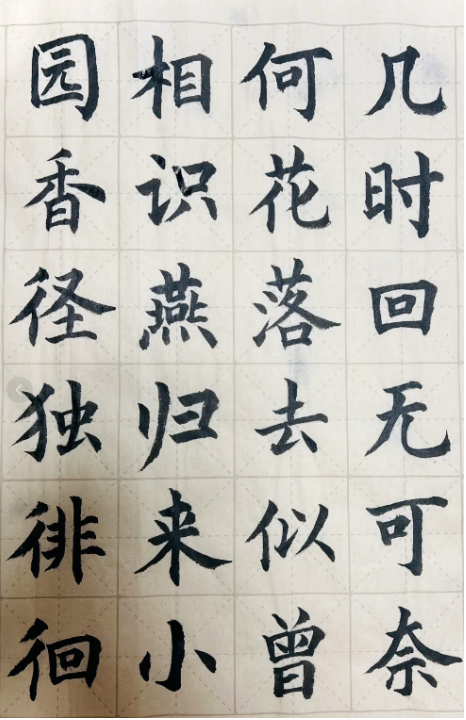 几时回无可奈
何花落去似曾
相识燕归来小
园香径独徘徊